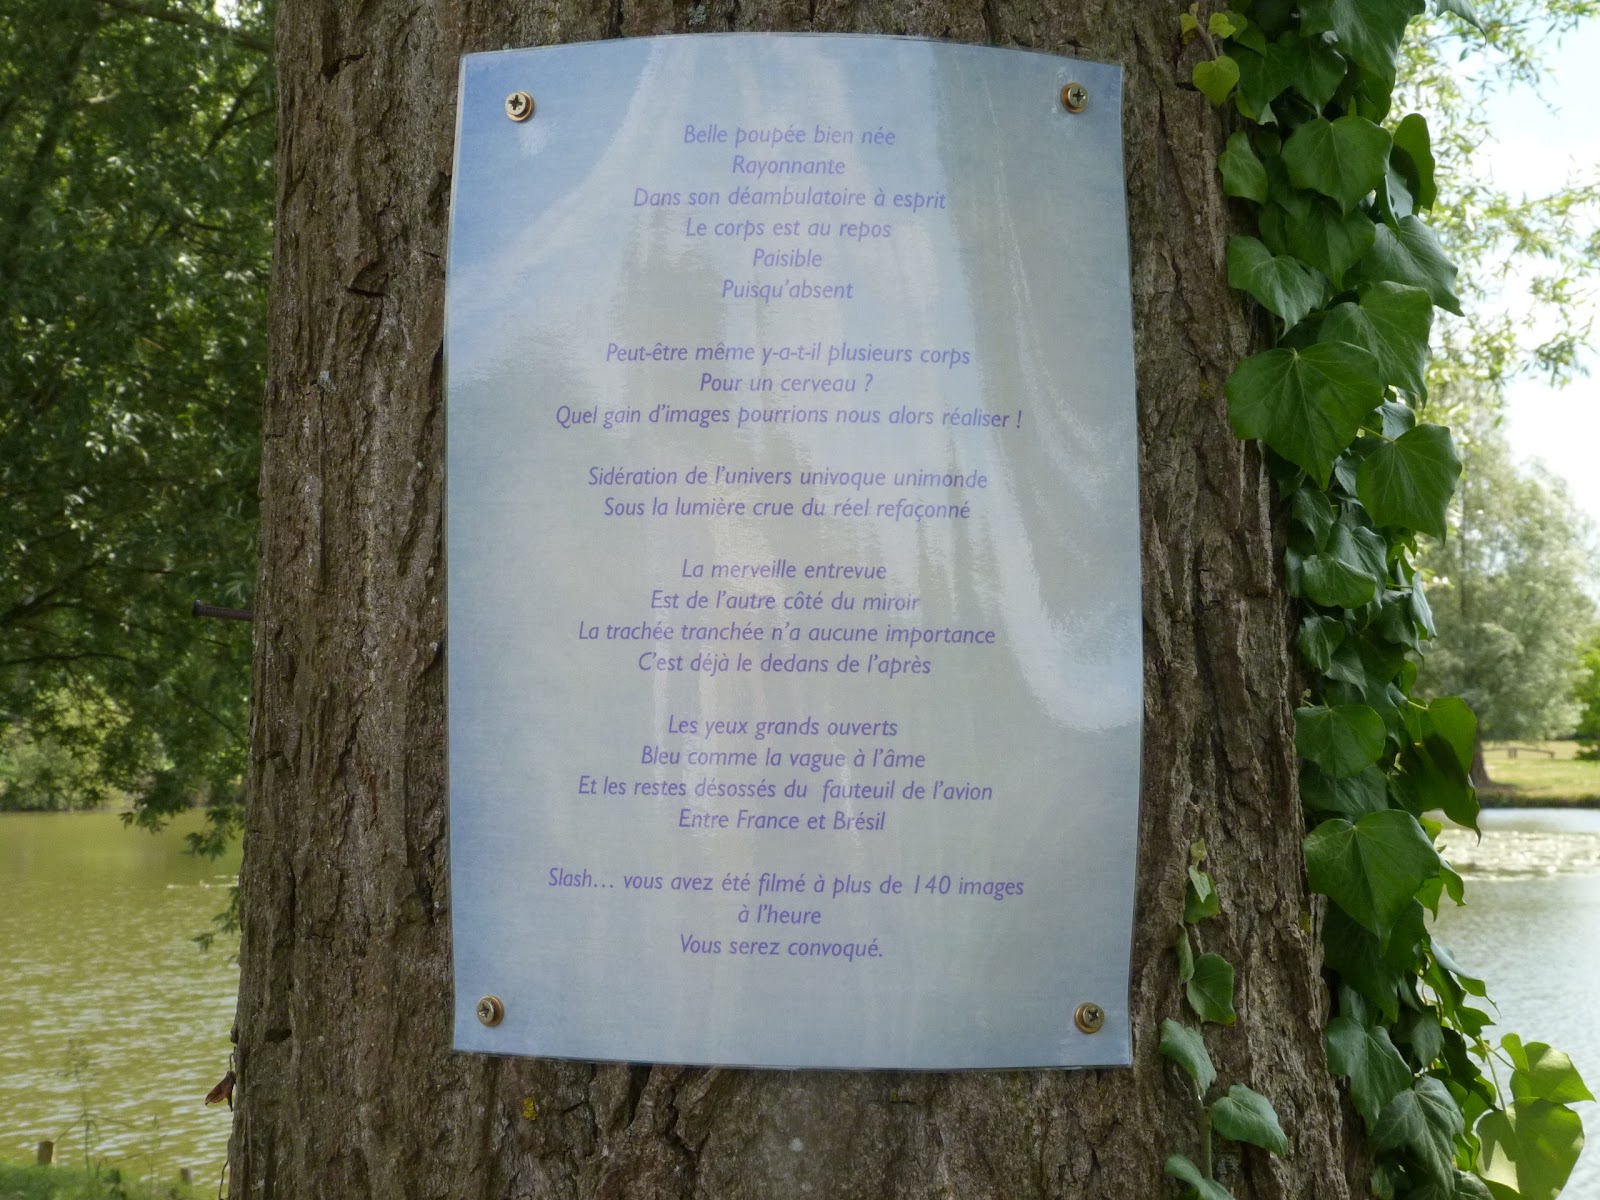 Belle poupée bien née
Rayonnante
Dans son déambulatoire à esprit
Le corps est au repos
Paisible
Puisqu'absent
Peut-être même y-a-t-il plusieurs corps
Pour un cerveau ?
Quel gain d'images pourrions nous alors réaliser !
Sidération de l'univers univoque unimonde
Sous la lumière crue du réel refaçonné
La merveille entrevue
Est de l'autre côté du miroir
La trachée tranchée n'a aucune importance
C'est déjà le dedans de l'après
Les yeux grands ouverts
Bleu comme la vague à l'âme
Et les restes désossés du fauteuil de l'avion
Entre France et Brésil
Slash... vous avez été filmé à plus de 140 images
à l'heure
Vous serez convoqué.